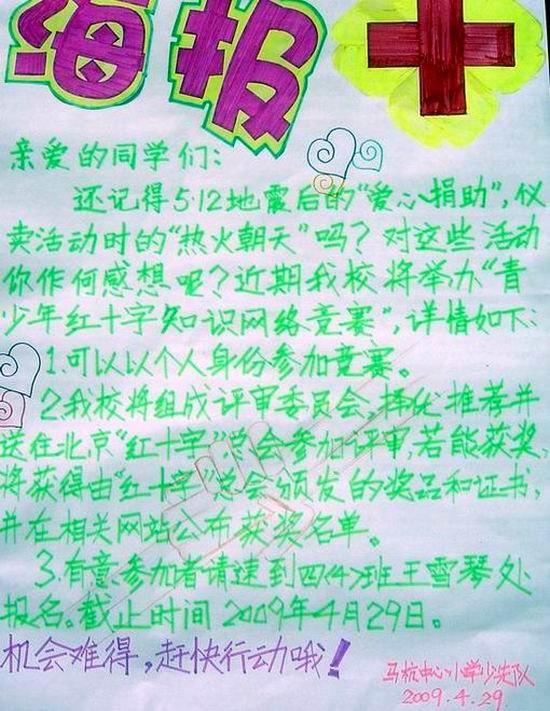 海报
亲爱的同学们:
还记得5·12地震后的“爱心捐助”,仪
卖活动时的“热火朝天”吗?对这些活动
你作何感想呢?近期我校将举办“青
少年红十字知识网络竞赛”,详情如下:
1.可以以个人身份参加竞赛。
2.我校将组成评审委员会,择优推荐并
送往北京“红十字”总会参加评审,若能获奖,
将获得由“红十字”总会颁发的奖品和证书,
并在相关网站公布获奖名单。
3.有意参加者请速到四〈4〉班王雪琴处
报名。截止时间2009年4月29日。
机会难得,赶快行动哦!
马杭中心小学少先队
2009.4.29.